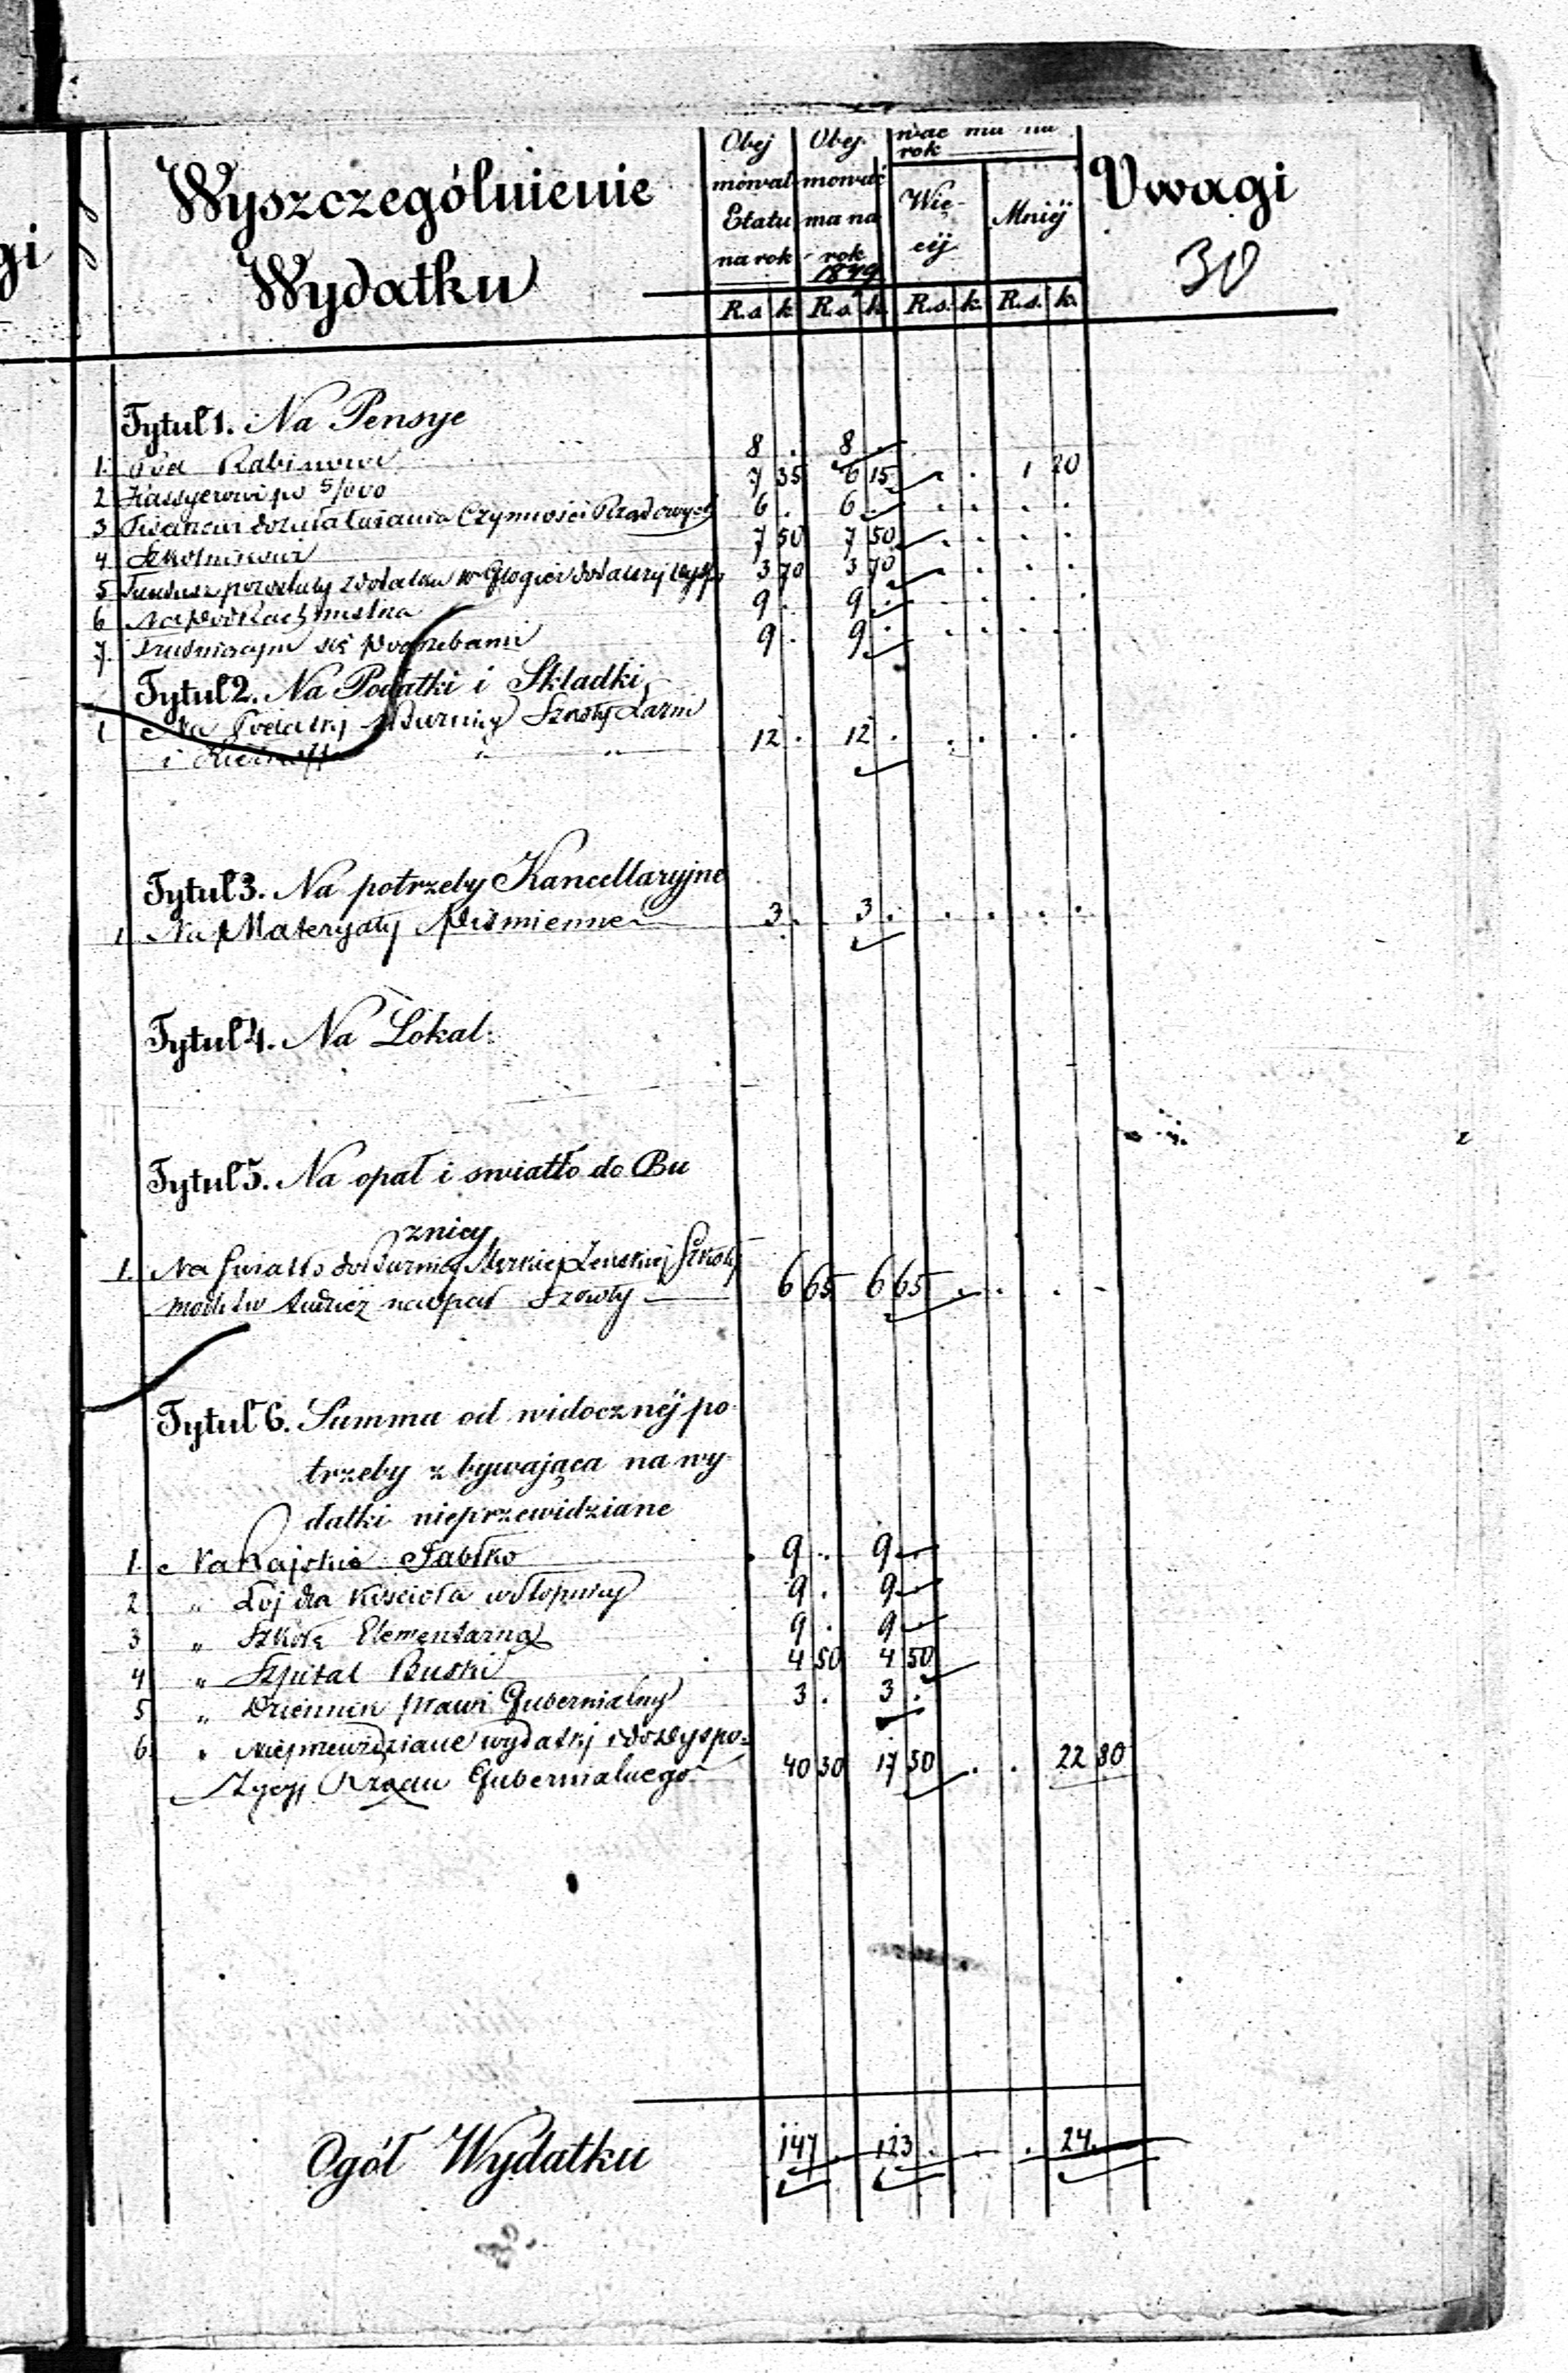 gi
Wyszczególnienie
Wydatku
Obej
mował
Etatu
na rok
Obej-
mować
ma na
rok
1849
wać ma na
rok
Wię-
céj
Mniéj
Uwagi
30
R.s. k. R.s. k. R.s. k. R.s. k.
Tytuł 1. Na Pensye
1. Rabinowi 8 . 8 .
2 Kassyerowi po 5/000 7 35 6 15 . . 1 20
3 Czynności Rządowych 6 . 6 . . . . .
4 Szkolnikowi 7 50 7 50 . . . .
5 Fundusz pozostały z dodatku 3 70 3 70 . . . .
6 9 . 9 . . . . .
7. Trudniącym się Pogrzebami 9 . 9 . . . . .
Tytuł 2. Na Podatki i Składki
1 Na Podatki Szkoły Łazni
i 12 . 12 . . . . .
Tytuł 3. Na potrzeby Kancellaryjne
1. Na Materyały Piśmienne 3 . 3 . . . . .
Tytuł 4. Na Lokal.
Tytuł 5. Na opał i swiatło do Bu
znicy
1. Na Swiatło do Buznicy Męzkiej Żeńskiej Szkoły
modłów tudzież na opał Szkoły 6 65 6 65 . . . .
Tytuł 6. Summa od widocznéj po
trzeby zbywająca na wy-
datki nieprzewidziane
1. Na Rajskie Jabłko 9 . 9 .
2 „ Łój dla Kościoła w Stopnicy 9 . 9 .
3 „ Szkołę Elementarną 9 . 9 .
4 „ Szpital Buski 4 50 4 50
5 „ Dziennik Praw i Gubernialny 3 . 3 .
6. „ Nieprzewidziane wydatki i do dyspo-
zycyi Rządu Gubernialnego 40 30 17 50 . . 22 80
Ogół Wydatku 147 . 123 . . . 24 .